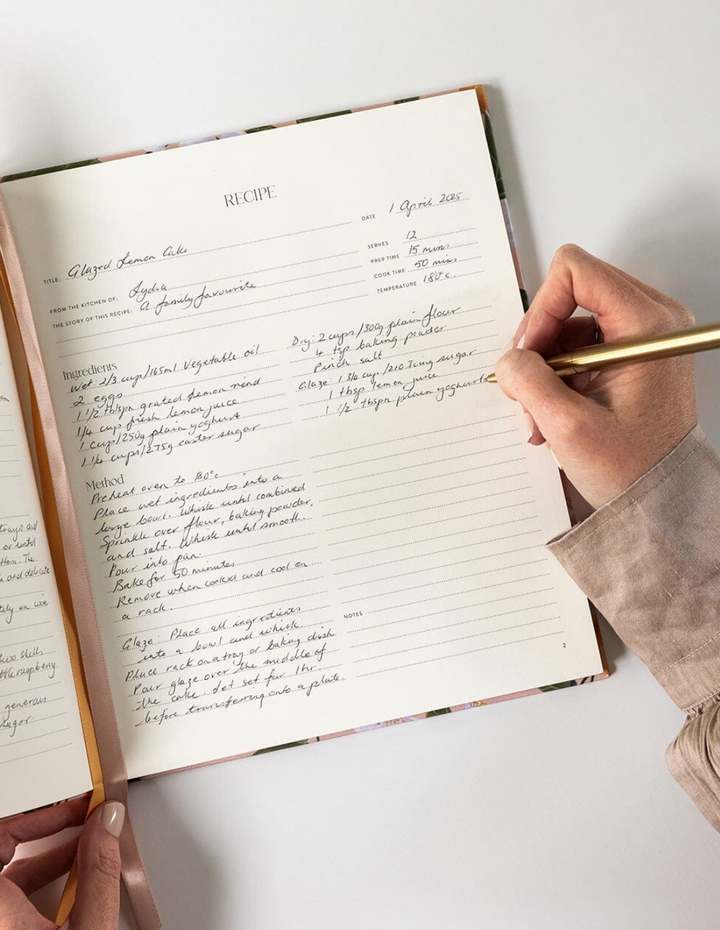 RECIPE
DATE 1 April 2025
TITLE: Glazed Lemon Cake
SERVES 12
FROM THE KITCHEN OF: Lydia
PREP TIME 15 mins
THE STORY OF THIS RECIPE: A family favourite
COOK TIME 50 mins
TEMPERATURE 180°c
Ingredients
Wet: 2/3 cup/165ml vegetable oil
2 eggs
1 1/2 tblspn grated lemon rind
1/4 cup fresh lemon juice
1 cup/250g plain yoghurt
1 1/4 cups/275g caster sugar
Dry: 2 cups/300g plain flour
4 tsp baking powder
Pinch salt
Glaze: 1 3/4 cup/210 Icing sugar
1 tbsp lemon juice
1 1/2 tbspn plain yoghurt
Method
Preheat oven to 180°c
Place wet ingredients into a
large bowl. Whisk until combined
Sprinkle over flour, baking powder,
and salt. Whisk until smooth.
Pour into pan.
Bake for 50 minutes
Remove when cooked and cool on
a rack.
Glaze: Place all ingredients
into a bowl and whisk
Place rack on a tray or baking dish
Pour glaze over the middle of
the cake. Let set for 1hr
before transferring onto a plate.
NOTES
2
or until
The
and delicate
on wire
shells
raspberry
generous